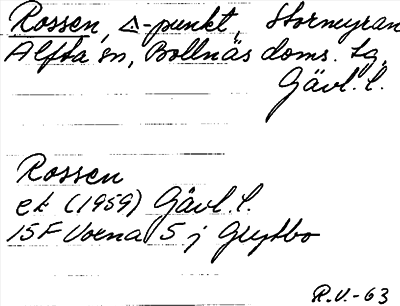 Rossen, △-punkt, Stormyran
Alfta sn, Bollnäs doms. tg,
Gävl. l.
Rossen
ek (1959) Gävl. l.
15 F Voxna 5 j Gustbo
R.V.-63